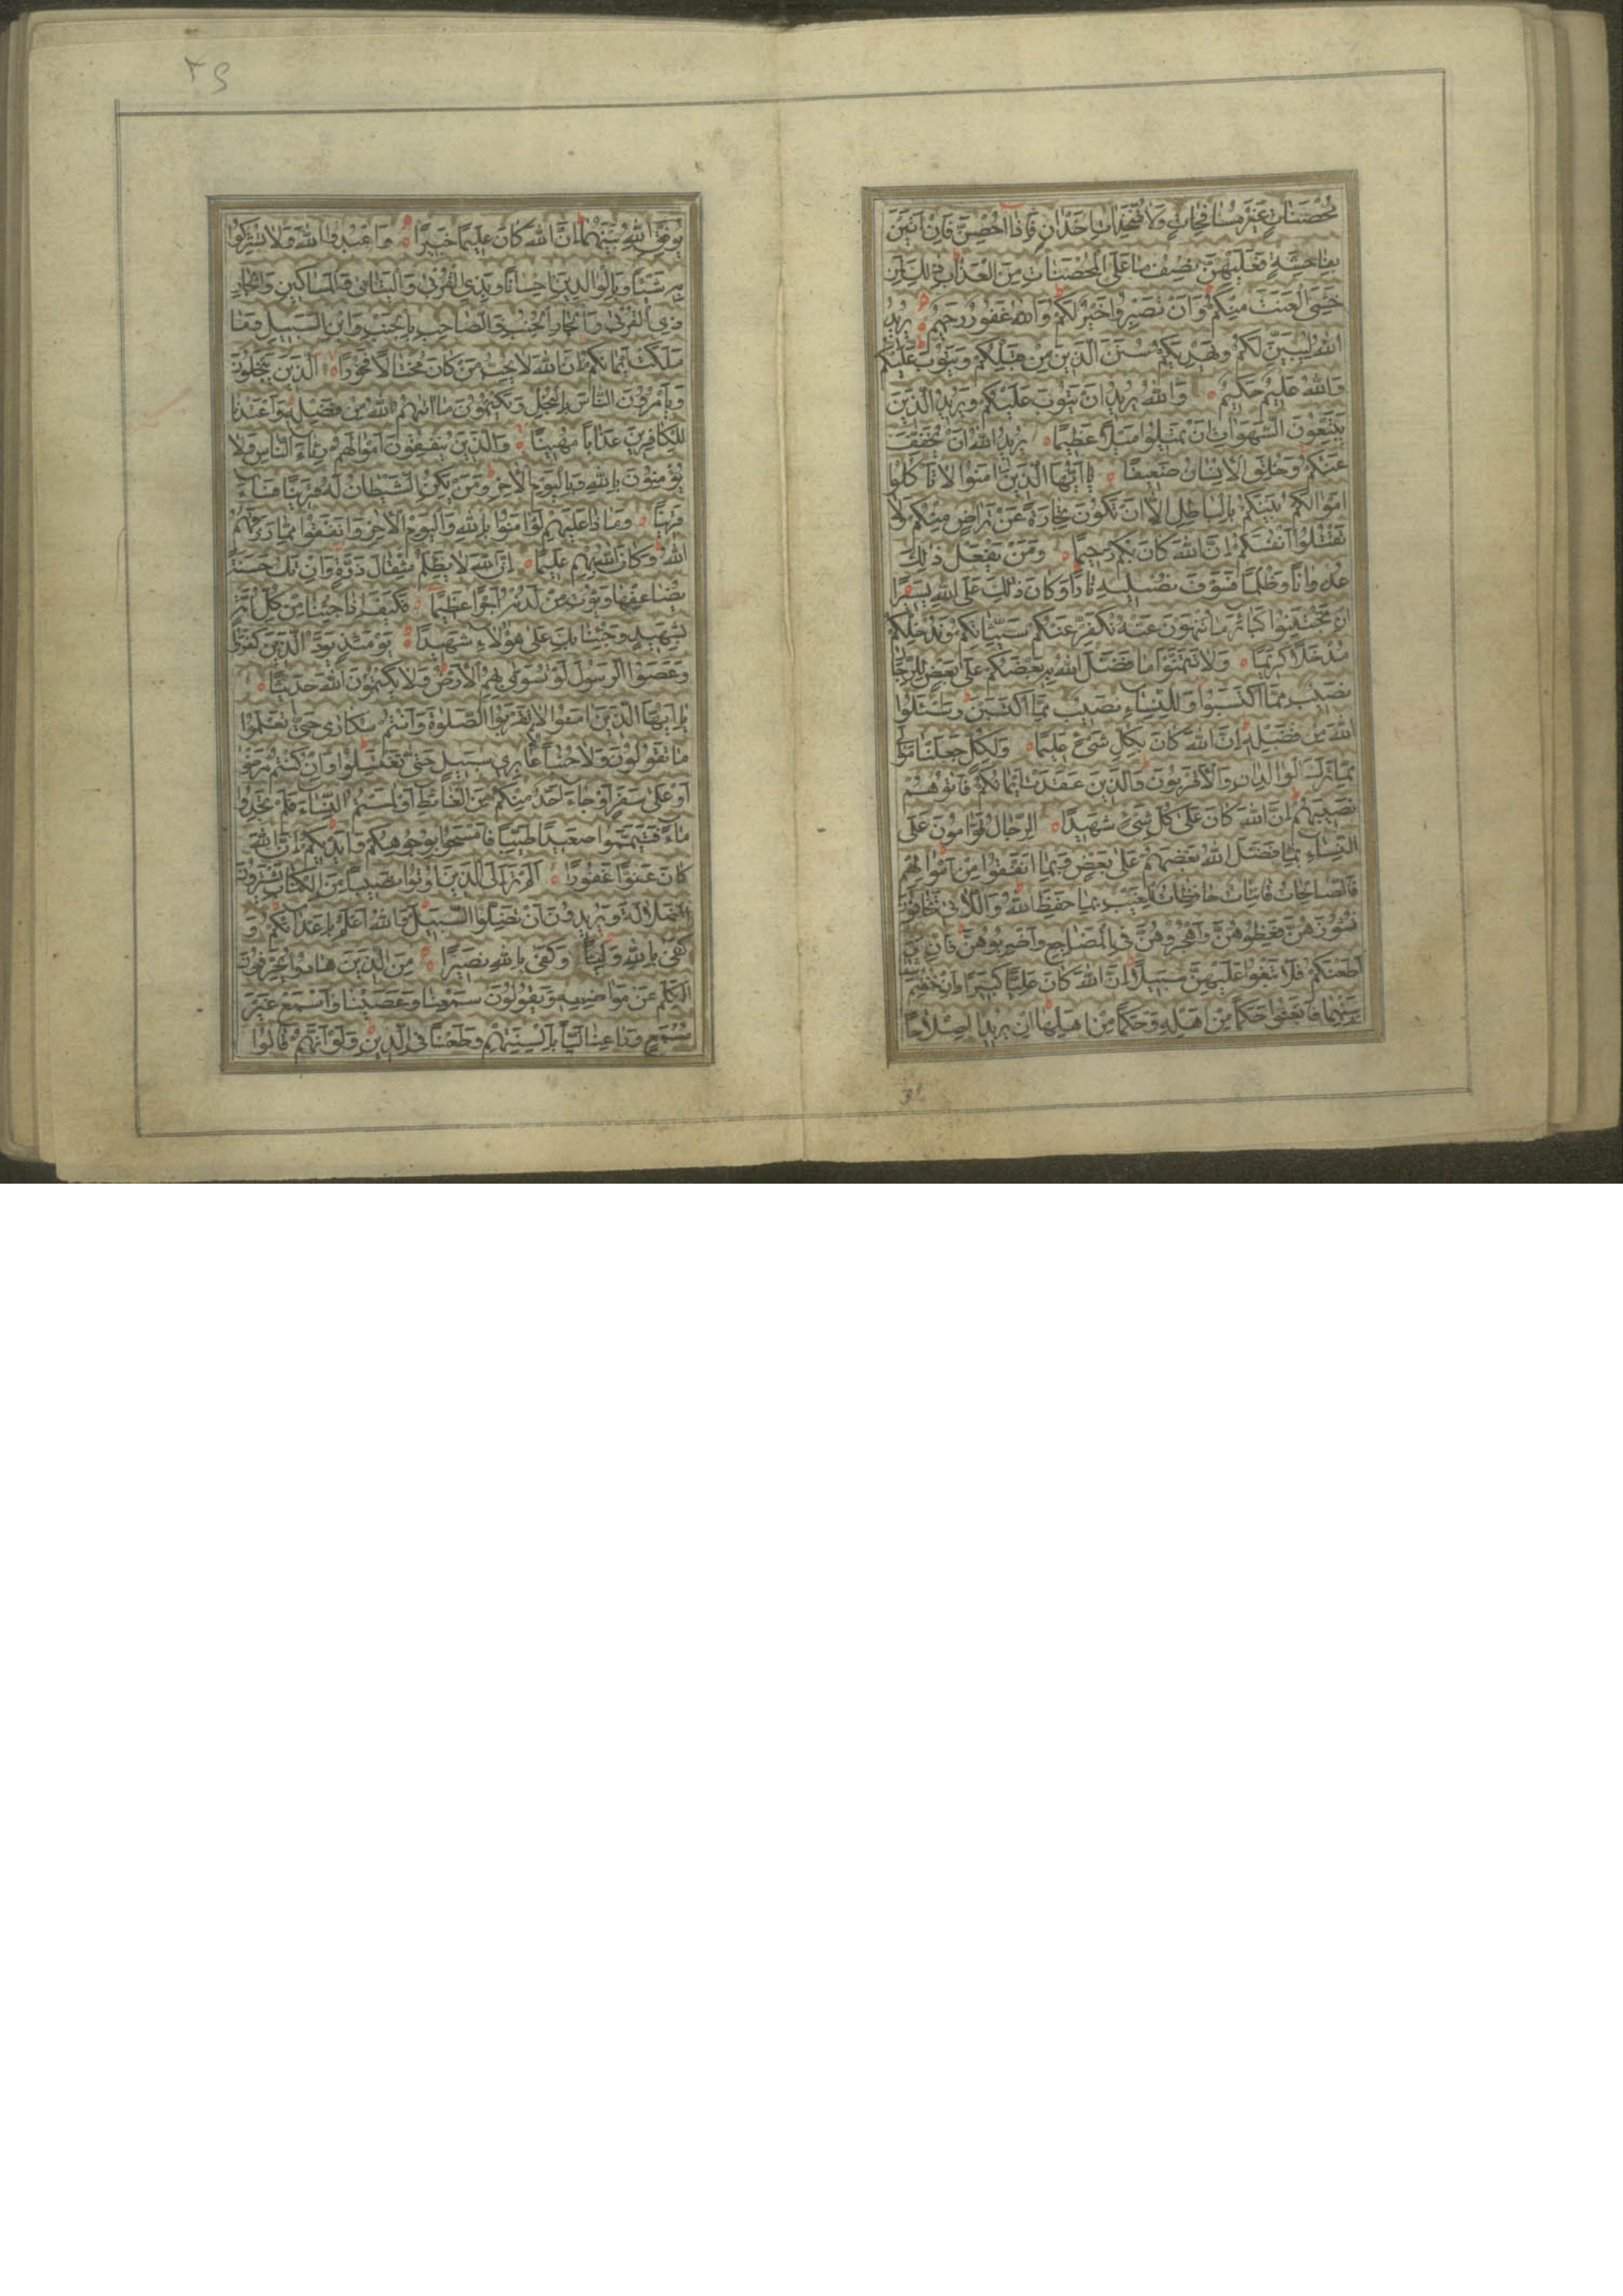 مُحْصَنَاتٍ غَيْرَ مُسَافِحَاتٍ وَلَا مُتَّخِذَاتِ أَخْدَانٍ فَإِذَا أُحْصِنَّ فَإِنْ أَتَيْنَ
بِفَاحِشَةٍ فَعَلَيْهِنَّ نِصْفُ مَا عَلَى الْمُحْصَنَاتِ مِنَ الْعَذَابِ ذَلِكَ لِمَنْ
خَشِيَ الْعَنَتَ مِنْكُمْ وَأَنْ تَصْبِرُوا خَيْرٌ لَكُمْ وَاللَّهُ غَفُورٌ رَحِيمٌ يُرِيدُ
اللَّهُ لِيُبَيِّنَ لَكُمْ وَيَهْدِيَكُمْ سُنَنَ الَّذِينَ مِنْ قَبْلِكُمْ وَيَتُوبَ عَلَيْكُمْ
وَاللَّهُ عَلِيمٌ حَكِيمٌ وَاللَّهُ يُرِيدُ أَنْ يَتُوبَ عَلَيْكُمْ وَيُرِيدُ الَّذِينَ
يَتَّبِعُونَ الشَّهَوَاتِ أَنْ تَمِيلُوا مَيْلًا عَظِيمًا يُرِيدُ اللَّهُ أَنْ يُخَفِّفَ
عَنْكُمْ وَخُلِقَ الْإِنْسَانُ ضَعِيفًا يَا أَيُّهَا الَّذِينَ آمَنُوا لَا تَأْكُلُوا
أَمْوَالَكُمْ بَيْنَكُمْ بِالْبَاطِلِ إِلَّا أَنْ تَكُونَ تِجَارَةً عَنْ تَرَاضٍ مِنْكُمْ وَلَا
تَقْتُلُوا أَنْفُسَكُمْ إِنَّ اللَّهَ كَانَ بِكُمْ رَحِيمًا وَمَنْ يَفْعَلْ ذَلِكَ
عُدْوَانًا وَظُلْمًا فَسَوْفَ نُصْلِيهِ نَارًا وَكَانَ ذَلِكَ عَلَى اللَّهِ يَسِيرًا
إِنْ تَجْتَنِبُوا كَبَائِرَ مَا تُنْهَوْنَ عَنْهُ نُكَفِّرْ عَنْكُمْ سَيِّئَاتِكُمْ وَنُدْخِلْكُمْ
مُدْخَلًا كَرِيمًا وَلَا تَتَمَنَّوْا مَا فَضَّلَ اللَّهُ بِهِ بَعْضَكُمْ عَلَى بَعْضٍ لِلرِّجَالِ
نَصِيبٌ مِمَّا اكْتَسَبُوا وَلِلنِّسَاءِ نَصِيبٌ مِمَّا اكْتَسَبْنَ وَاسْئَلُوا
اللَّهَ مِنْ فَضْلِهِ إِنَّ اللَّهَ كَانَ بِكُلِّ شَيْءٍ عَلِيمًا وَلِكُلٍّ جَعَلْنَا مَوَالِيَ
مِمَّا تَرَكَ الْوَالِدَانِ وَالْأَقْرَبُونَ وَالَّذِينَ عَقَدَتْ أَيْمَانُكُمْ فَآتُوهُمْ
نَصِيبَهُمْ إِنَّ اللَّهَ كَانَ عَلَى كُلِّ شَيْءٍ شَهِيدًا الرِّجَالُ قَوَّامُونَ عَلَى
النِّسَاءِ بِمَا فَضَّلَ اللَّهُ بَعْضَهُمْ عَلَى بَعْضٍ وَبِمَا أَنْفَقُوا مِنْ أَمْوَالِهِمْ
فَالصَّالِحَاتُ قَانِتَاتٌ حَافِظَاتٌ لِلْغَيْبِ بِمَا حَفِظَ اللَّهُ وَاللَّاتِي تَخَافُونَ
نُشُوزَهُنَّ فَعِظُوهُنَّ وَاهْجُرُوهُنَّ فِي الْمَضَاجِعِ وَاضْرِبُوهُنَّ فَإِنْ
أَطَعْنَكُمْ فَلَا تَبْغُوا عَلَيْهِنَّ سَبِيلًا إِنَّ اللَّهَ كَانَ عَلِيًّا كَبِيرًا وَإِنْ خِفْتُمْ شِقَاقَ
بَيْنِهِمَا فَابْعَثُوا حَكَمًا مِنْ أَهْلِهِ وَحَكَمًا مِنْ أَهْلِهَا إِنْ يُرِيدَا إِصْلَاحًا
يُوَفِّقِ اللَّهُ بَيْنَهُمَا إِنَّ اللَّهَ كَانَ عَلِيمًا خَبِيرًا وَاعْبُدُوا اللَّهَ وَلَا تُشْرِكُوا
بِهِ شَيْئًا وَبِالْوَالِدَيْنِ إِحْسَانًا وَبِذِي الْقُرْبَى وَالْيَتَامَى وَالْمَسَاكِينِ وَالْجَارِ
ذِي الْقُرْبَى وَالْجَارِ الْجُنُبِ وَالصَّاحِبِ بِالْجَنْبِ وَابْنِ السَّبِيلِ وَمَا
مَلَكَتْ أَيْمَانُكُمْ إِنَّ اللَّهَ لَا يُحِبُّ مَنْ كَانَ مُخْتَالًا فَخُورًا الَّذِينَ يَبْخَلُونَ
وَيَأْمُرُونَ النَّاسَ بِالْبُخْلِ وَيَكْتُمُونَ مَا آتَاهُمُ اللَّهُ مِنْ فَضْلِهِ وَأَعْتَدْنَا
لِلْكَافِرِينَ عَذَابًا مُهِينًا وَالَّذِينَ يُنْفِقُونَ أَمْوَالَهُمْ رِئَاءَ النَّاسِ وَلَا
يُؤْمِنُونَ بِاللَّهِ وَلَا بِالْيَوْمِ الْآخِرِ وَمَنْ يَكُنِ الشَّيْطَانُ لَهُ قَرِينًا فَسَاءَ
قَرِينًا وَمَاذَا عَلَيْهِمْ لَوْ آمَنُوا بِاللَّهِ وَالْيَوْمِ الْآخِرِ وَأَنْفَقُوا مِمَّا رَزَقَهُمُ
اللَّهُ وَكَانَ اللَّهُ بِهِمْ عَلِيمًا إِنَّ اللَّهَ لَا يَظْلِمُ مِثْقَالَ ذَرَّةٍ وَإِنْ تَكُ حَسَنَةً
يُضَاعِفْهَا وَيُؤْتِ مِنْ لَدُنْهُ أَجْرًا عَظِيمًا فَكَيْفَ إِذَا جِئْنَا مِنْ كُلِّ أُمَّةٍ
بِشَهِيدٍ وَجِئْنَا بِكَ عَلَى هَؤُلَاءِ شَهِيدًا يَوْمَئِذٍ يَوَدُّ الَّذِينَ كَفَرُوا
وَعَصَوُا الرَّسُولَ لَوْ تُسَوَّى بِهِمُ الْأَرْضُ وَلَا يَكْتُمُونَ اللَّهَ حَدِيثًا
يَا أَيُّهَا الَّذِينَ آمَنُوا لَا تَقْرَبُوا الصَّلَوةَ وَأَنْتُمْ سُكَارَى حَتَّى تَعْلَمُوا
مَا تَقُولُونَ وَلَا جُنُبًا إِلَّا عَابِرِي سَبِيلٍ حَتَّى تَغْتَسِلُوا وَإِنْ كُنْتُمْ مَرْضَى
أَوْ عَلَى سَفَرٍ أَوْ جَاءَ أَحَدٌ مِنْكُمْ مِنَ الْغَائِطِ أَوْ لَامَسْتُمُ النِّسَاءَ فَلَمْ تَجِدُوا
مَاءً فَتَيَمَّمُوا صَعِيدًا طَيِّبًا فَامْسَحُوا بِوُجُوهِكُمْ وَأَيْدِيكُمْ إِنَّ اللَّهَ
كَانَ عَفُوًّا غَفُورًا أَلَمْ تَرَ إِلَى الَّذِينَ أُوتُوا نَصِيبًا مِنَ الْكِتَابِ يَشْتَرُونَ
الضَّلَالَةَ وَيُرِيدُونَ أَنْ تَضِلُّوا السَّبِيلَ وَاللَّهُ أَعْلَمُ بِأَعْدَائِكُمْ وَ
كَفَى بِاللَّهِ وَلِيًّا وَكَفَى بِاللَّهِ نَصِيرًا مِنَ الَّذِينَ هَادُوا يُحَرِّفُونَ
الْكَلِمَ عَنْ مَوَاضِعِهِ وَيَقُولُونَ سَمِعْنَا وَعَصَيْنَا وَاسْمَعْ غَيْرَ
مُسْمَعٍ وَرَاعِنَا لَيًّا بِأَلْسِنَتِهِمْ وَطَعْنًا فِي الدِّينِ وَلَوْ أَنَّهُمْ قَالُوا